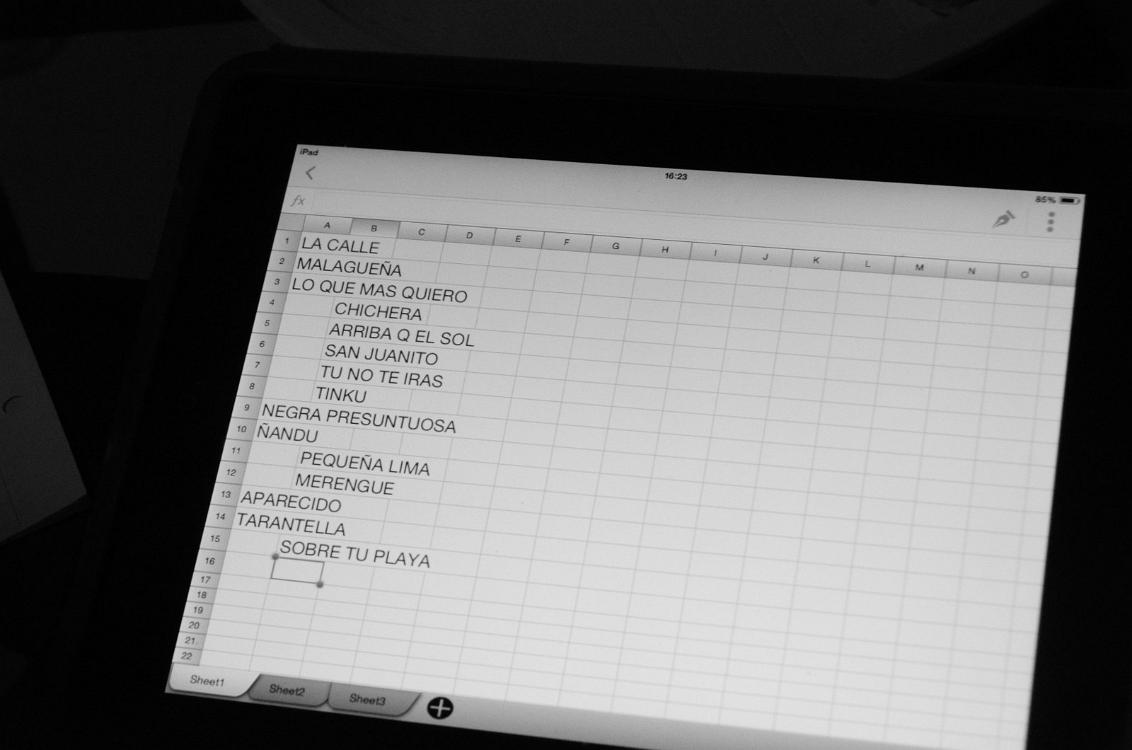 iPad
16:23
85%
fx
A B C D E F G H I J K L M N O
1 LA CALLE
2 MALAGUEÑA
3 LO QUE MAS QUIERO
4 CHICHERA
5 ARRIBA Q EL SOL
6 SAN JUANITO
7 TU NO TE IRAS
8 TINKU
9 NEGRA PRESUNTUOSA
10 ÑANDU
11 PEQUEÑA LIMA
12 MERENGUE
13 APARECIDO
14 TARANTELLA
15 SOBRE TU PLAYA
16
17
18
19
20
21
22
Sheet1 Sheet2 Sheet3